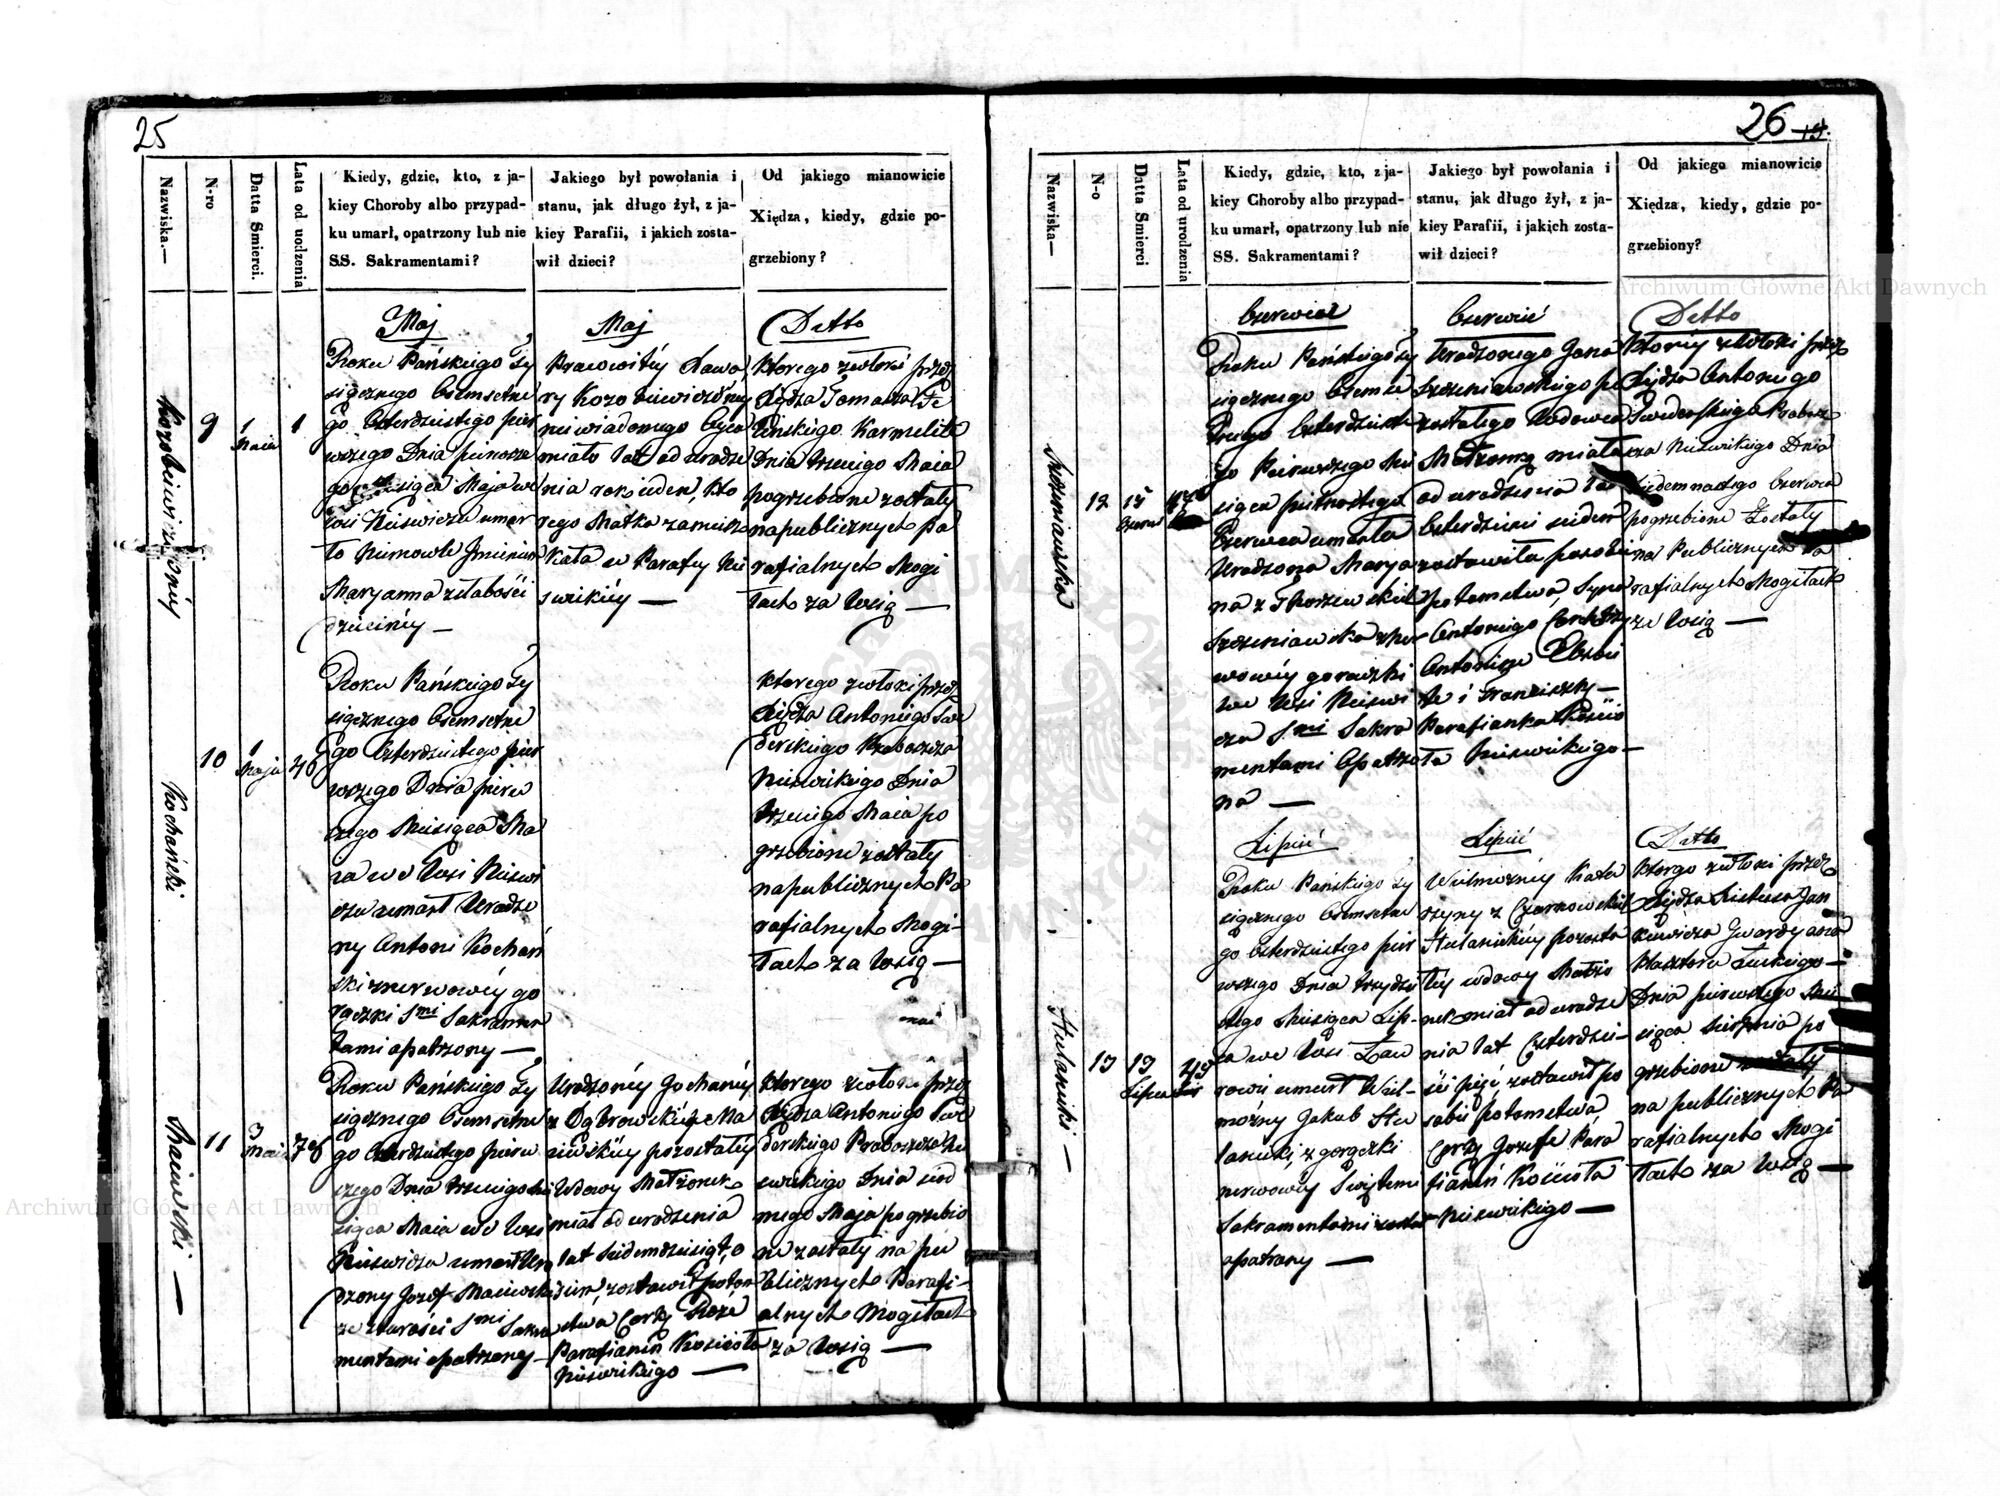 25
Nazwiska.—
N-ro
Datta Smierci.
Lata od uodzenia
Kiedy, gdzie, kto, z ja-
kiey Choroby albo przypad-
ku umarł, opatrzony lub nie
SS. Sakramentami?
Jakiego był powołania i
stanu, jak długo żył, z ja-
kiey Parafii, i jakich zosta-
wił dzieci?
Od jakiego mianowicie
Xiędza, kiedy, gdzie po-
grzebiony?
9
1
Maia
1
Maj
Roku Pańskiego Ty
siącznego Osemsetne
go Czterdziestego pier
wszego Dnia pierwsze
go Miesiąca Maja we
wsi Nieswiczu umar
ło Niemowle Imieniem
Maryanna z słabości
dziecinney —
Maj
Prawowitey Sawo
niewiadomego Oyca
miało lat od urodze
nia rok jeden, kto
rego Matka zamiesz
kała w Parafii Nie
swickiey —
Detto
Ktorego zwłoki przez
Xiędza Tomasza
Karmelite
Dnia trzeciego Maia
pogrzebione zostały
na publicznych Pa
rafialnych Mogi
łach za Wsią —
Kochański
10
1
Maja
Roku Pańskiego Ty
siącznego Osemsetne
go Czterdziestego pier
wszego Dnia pierw
szego Miesiąca Ma
ia we Wsi Nieswi
czu umarł Urodzo
ny Antoni Kochań
ski z nerwowey go
rączki Smi Sakramen
tami opatrzony —
Ktorego zwłoki przez
Xiędza Antoniego Swi
derskiego Proboszcza
Nieswickiego Dnia
trzeciego Maia po
grzebione zostały
na publicznych Pa
rafialnych Mogi-
łach za Wsią —
Maiewski —
11
3
Maia
Roku Pańskiego Ty
siącznego Osemsetne
go Czterdziestego pierw
szego Dnia trzeciego Mie
siąca Maia we Wsi
Nieswiczu umarł Uro
dzony Jozef Maiewski
ze starości Smi Sakra
mentami opatrzony —
Urodzoney Johanny
z Dąbrowskich Ma
iewskiey pozostałey
Wdowy Małżonek
miał od urodzenia
lat Siedemdziesiąt, o
siem, zostawił potom
stwa Corkę Rozę
Parafianin Kościoła
Nieswickiego —
Ktorego zwłoki przez
Xiędza Antoniego Swi
derskiego Proboszcza Nie
swickiego Dnia siod
mego Maja pogrzebio
ne zostały na pu
blicznych Parafi-
alnych Mogiłach
za Wsią —
26
Nazwiska—
N-o
Datta Smierci
Lata od urodzenia
Kiedy, gdzie, kto, z ja-
kiey Choroby albo przypad-
ku umarł, opatrzony lub nie
SS. Sakramentami?
Jakiego był powołania i
stanu, jak długo żył, z ja-
kiey Parafii, i jakich zosta-
wił dzieci?
Od jakiego mianowicie
Xiędza, kiedy, gdzie po-
grzebiony?
Szczeniawska
12
15
47
Czerwiec
Roku Pańskiego Ty
siącznego Osemse
tnego Czterdzieste
go Pierwszego Mie
siąca piętnastego
Czerwca umarła
Urodzona Marya
na z
Szczeniawska z ner
wowey gorączki
we Wsi Nieswi
czu Smi Sakra
mentami Opatrzo
na —
Czerwiec
Urodzonego Jana
Szczeniawskiego po
zostałego Wdowca
Małżonka miała
od urodzenia lat
Czterdzieści siedem
zostawiła po sobie
potomstwa Syna
Antoniego Corki
Antoninę Elżbie
te i Franciszkę —
Parafianka Kościo
ła Nieswickiego —
Detto
Ktorey zwłoki przez
Xiędza Antoniego
Swiderskiego Probosz
cza Nieswickiego Dnia
Siedemnastego Czerwca
pogrzebione zostały
na Publicznych Pa
rafialnych Mogiłach
za Wsią —
13
Lipiec
Roku Pańskiego Ty
siącznego Osemsetne
go Czterdziestego pier
wszego Dnia trzydzie
stego Miesiąca Lip-
ca we Wsi Ław
rowie umarł Wiel
możny Jakub
z gorączki
nerwowey Swiętemi
Sakramentami
opatrzony —
Lipiec
Wielmożney Kata
rzyny z Czarnowskich
pozosta
łey wdowy Małżo
nek miał od urodze
nia lat Czterdzie-
ści pięć zostawił po
sobie potomstwa
Corkę Jozefę Para
fianin Kościoła
Nieswickiego —
Detto
Ktorego zwłoki przez
Xiędza Jan
kiewicza Gwardyana
Klasztoru Łuckiego —
Dnia pierwszego Mie
siąca Sierpnia po
grzebione zostały
na publicznych Pa
rafialnych Mogi
łach za Wsią —
Archiwum Główne Akt Dawnych
Archiwum Główne Akt Dawnych